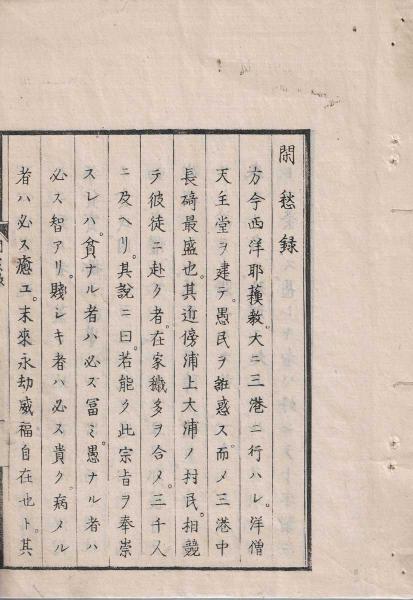 閑愁録
方今西洋耶蘓教大ニ三港ニ行ハレ。洋僧
天主堂ヲ建テ。愚民ヲ誑惑ス。而メ三港中
長碕最盛也。其近傍浦上大浦ノ村民。相競
テ彼徒ニ赴ク者。在家穢多ヲ合メ。三千人
ニ及ヘリ。其說ニ曰。若能ク此宗旨ヲ奉崇
スレハ。貧ナル者ハ必ズ冨ミ。愚ナル者ハ
必ス智アリ。賤シキ者ハ必ス貴ク。病メル
者ハ必ス癒ユ。未來永劫威福自在也ト。其